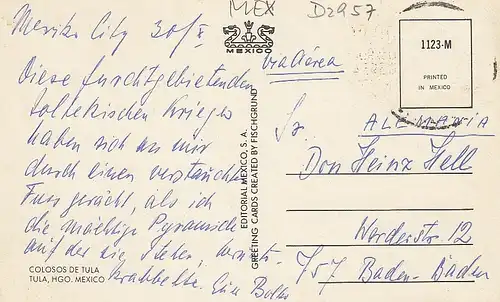 MEX D2957
Mexiko City 30/X
MEXICO
via Aérea
1123-M
PRINTED
IN MEXICO
Diese furchtgebietenden
toltekischen Krieger
haben sich an mir
durch einen verstauchten
Fuss gerächt, als ich
die mächtige Pyramide
auf der sie stehen,
krabbelte.
COLOSOS DE TULA
TULA, HGO. MEXICO
EDITORIAL MEXICO, S. A.
GREETING CARDS CREATED BY FISCHGRUND
ALEMANIA
Don Heinz Hell
Werderstr. 12
757 Baden-Baden